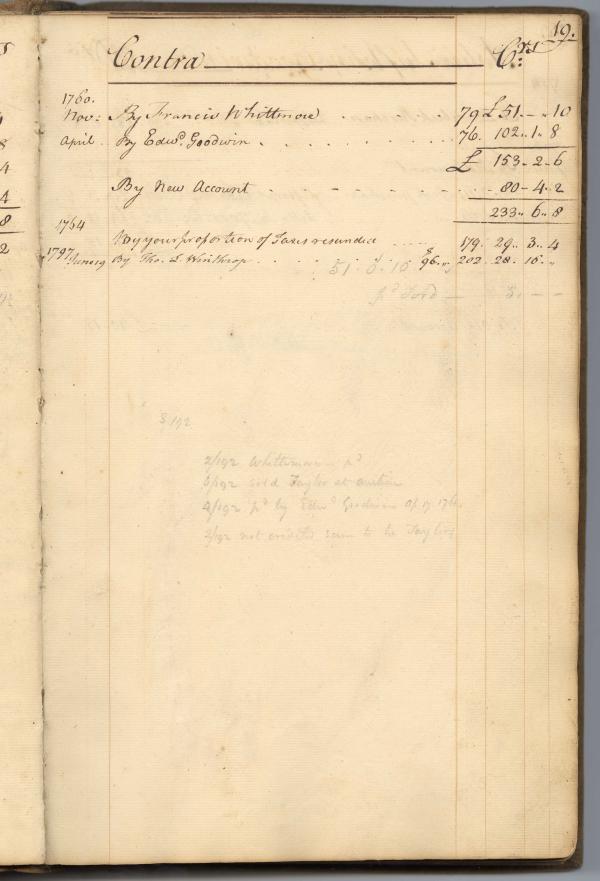 19.
Contra Crs
1760.
Nov: By Francis Whittmore . 79 £51.-.10
April . By Edwd. Goodwin . . . . 76. 102.1.8
£ 153-2-6
By New Account . - - - - - - 80-4.2
233.6.8
1764
By your proportion of Taxes refunded . . . . 179. 29.. 3.. 4
1797 June 19 By Tho. L Winthrop . . . . $96.. 202. 28. 16. „
51. 0. 10
pd Ford — 3. - -
3/192
2/192 Whittemore pd
3/192 sold Taylor at auction
4/192 pd by Edwd Goodwin Ap 17 176
2/192 not credited seem to be Taylors